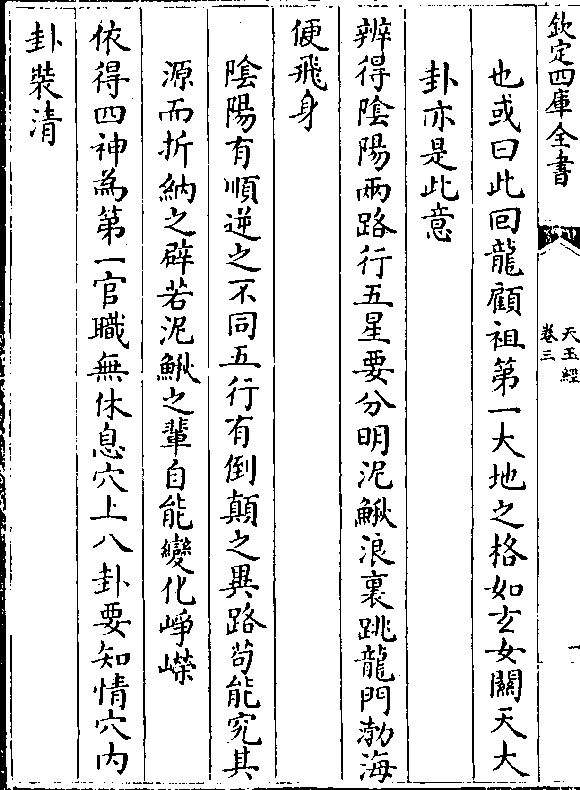 欽定四庫全書
天玉經
卷三
也或曰此回龍顧祖第一大地之格如玄女關天大
卦亦是此意
辨得陰陽兩路行五星要分明泥鰍浪裏跳龍門渤海
便飛身
陰陽有順逆之不同五行有倒顛之異路茍能究其
源而折納之辟若泥鰍之輩自能變化崢嶸
依得四神為第一官職無休息穴上八卦要知情穴内
卦裝清